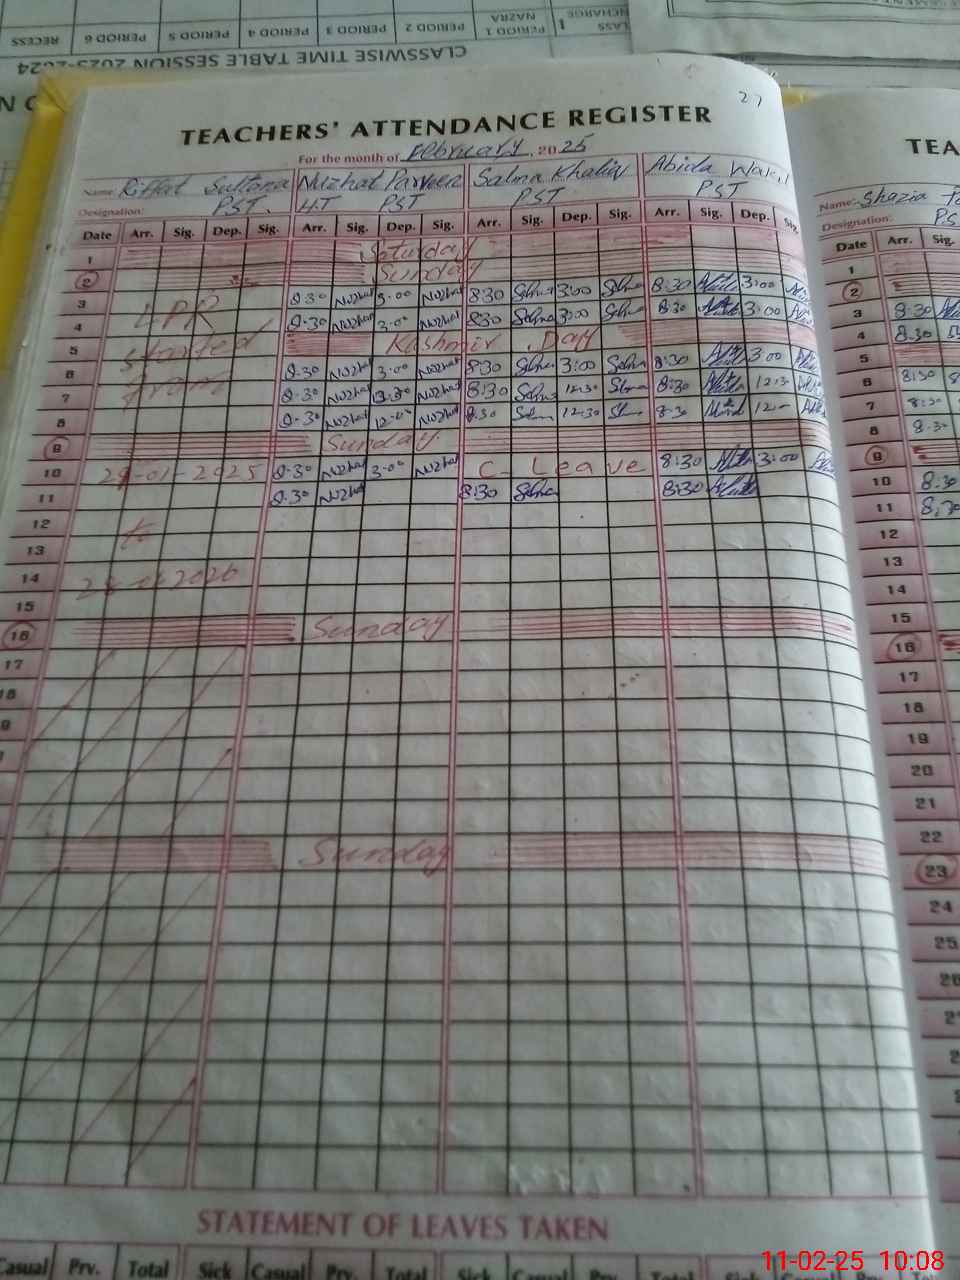 CLASS INCHARGE 1 PERIOD 1 NAZRA PERIOD 2 PERIOD 3 PERIOD 4 PERIOD 5 PERIOD 6 RECESS
CLASSWISE TIME TABLE SESSION 2023-2024
27
TEACHERS' ATTENDANCE REGISTER
For the month of February, 2025
Name: Riffat Sultana Nuzhat Parveen Salma Khaliq Abida Wakil
Designation: PST. PST PST PST
Date Arr. Sig. Dep. Sig. Arr. Sig. Dep. Sig. Arr. Sig. Dep. Sig. Arr. Sig. Dep. Sig.
1 Saturday
2 Sunday
3 8:30 Nuzhat 3:00 Nuzhat 8:30 Salma 3:00 Salma 8:30 Abida 3:00
4 LPR 8:30 Nuzhat 3:00 Nuzhat 8:30 Salma 3:00 Salma 8:30 Abida 3:00
5 started Kashmir Day
6 from 8:30 Nuzhat 3:00 Nuzhat 8:30 Salma 3:00 Salma 8:30 Abida 3:00
7 8:30 Nuzhat Nuzhat 8:30 Salma 12:30 Salma 8:30 Abida 12:30
8 8:30 Nuzhat Nuzhat 8:30 Salma 12:30 Salma 8:30 Abida
9 Sunday
10 29-01-2025 8:30 Nuzhat 3:00 Nuzhat C-Leave 8:30 Abida 3:00
11 8:30 Nuzhat 8:30 Salma 8:30 Abida
12 to
13
14 2026
15
16 Sunday
17
18
Sunday
STATEMENT OF LEAVES TAKEN
Casual Prv. Total Sick Casual Prv. Total Sick Casual
TEA
Name: Shazia
Designation: PS
Date Arr. Sig.
1
2
3 8:30
4 8:30
5
6 8:30
7 8:30
8 8:30
9
10 8:30
11 8:30
12
13
14
15
16
17
18
19
20
21
22
23
24
25
11-02-25 10:08